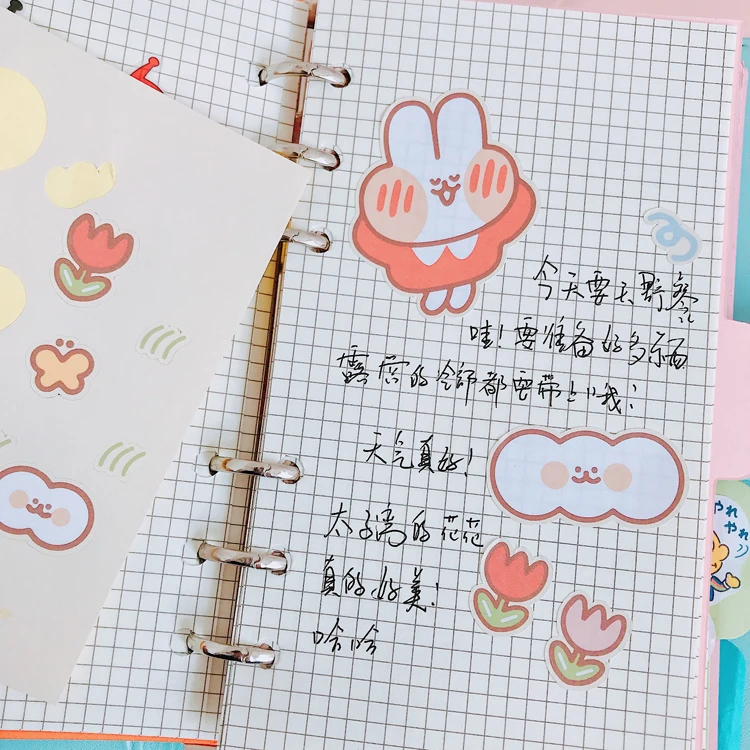 今天要去野餐
哇!要准备好多东西
露营的冷師都要带上哦!
天气真好!
太子湾的花花
真的好美!
哈哈
やれ
やれ